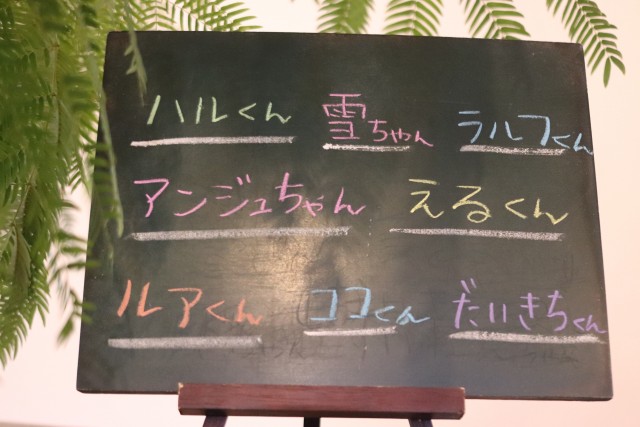 ハルくん 雪ちゃん ラルフくん
アンジュちゃん えるくん
ルアくん ココくん だいきちくん